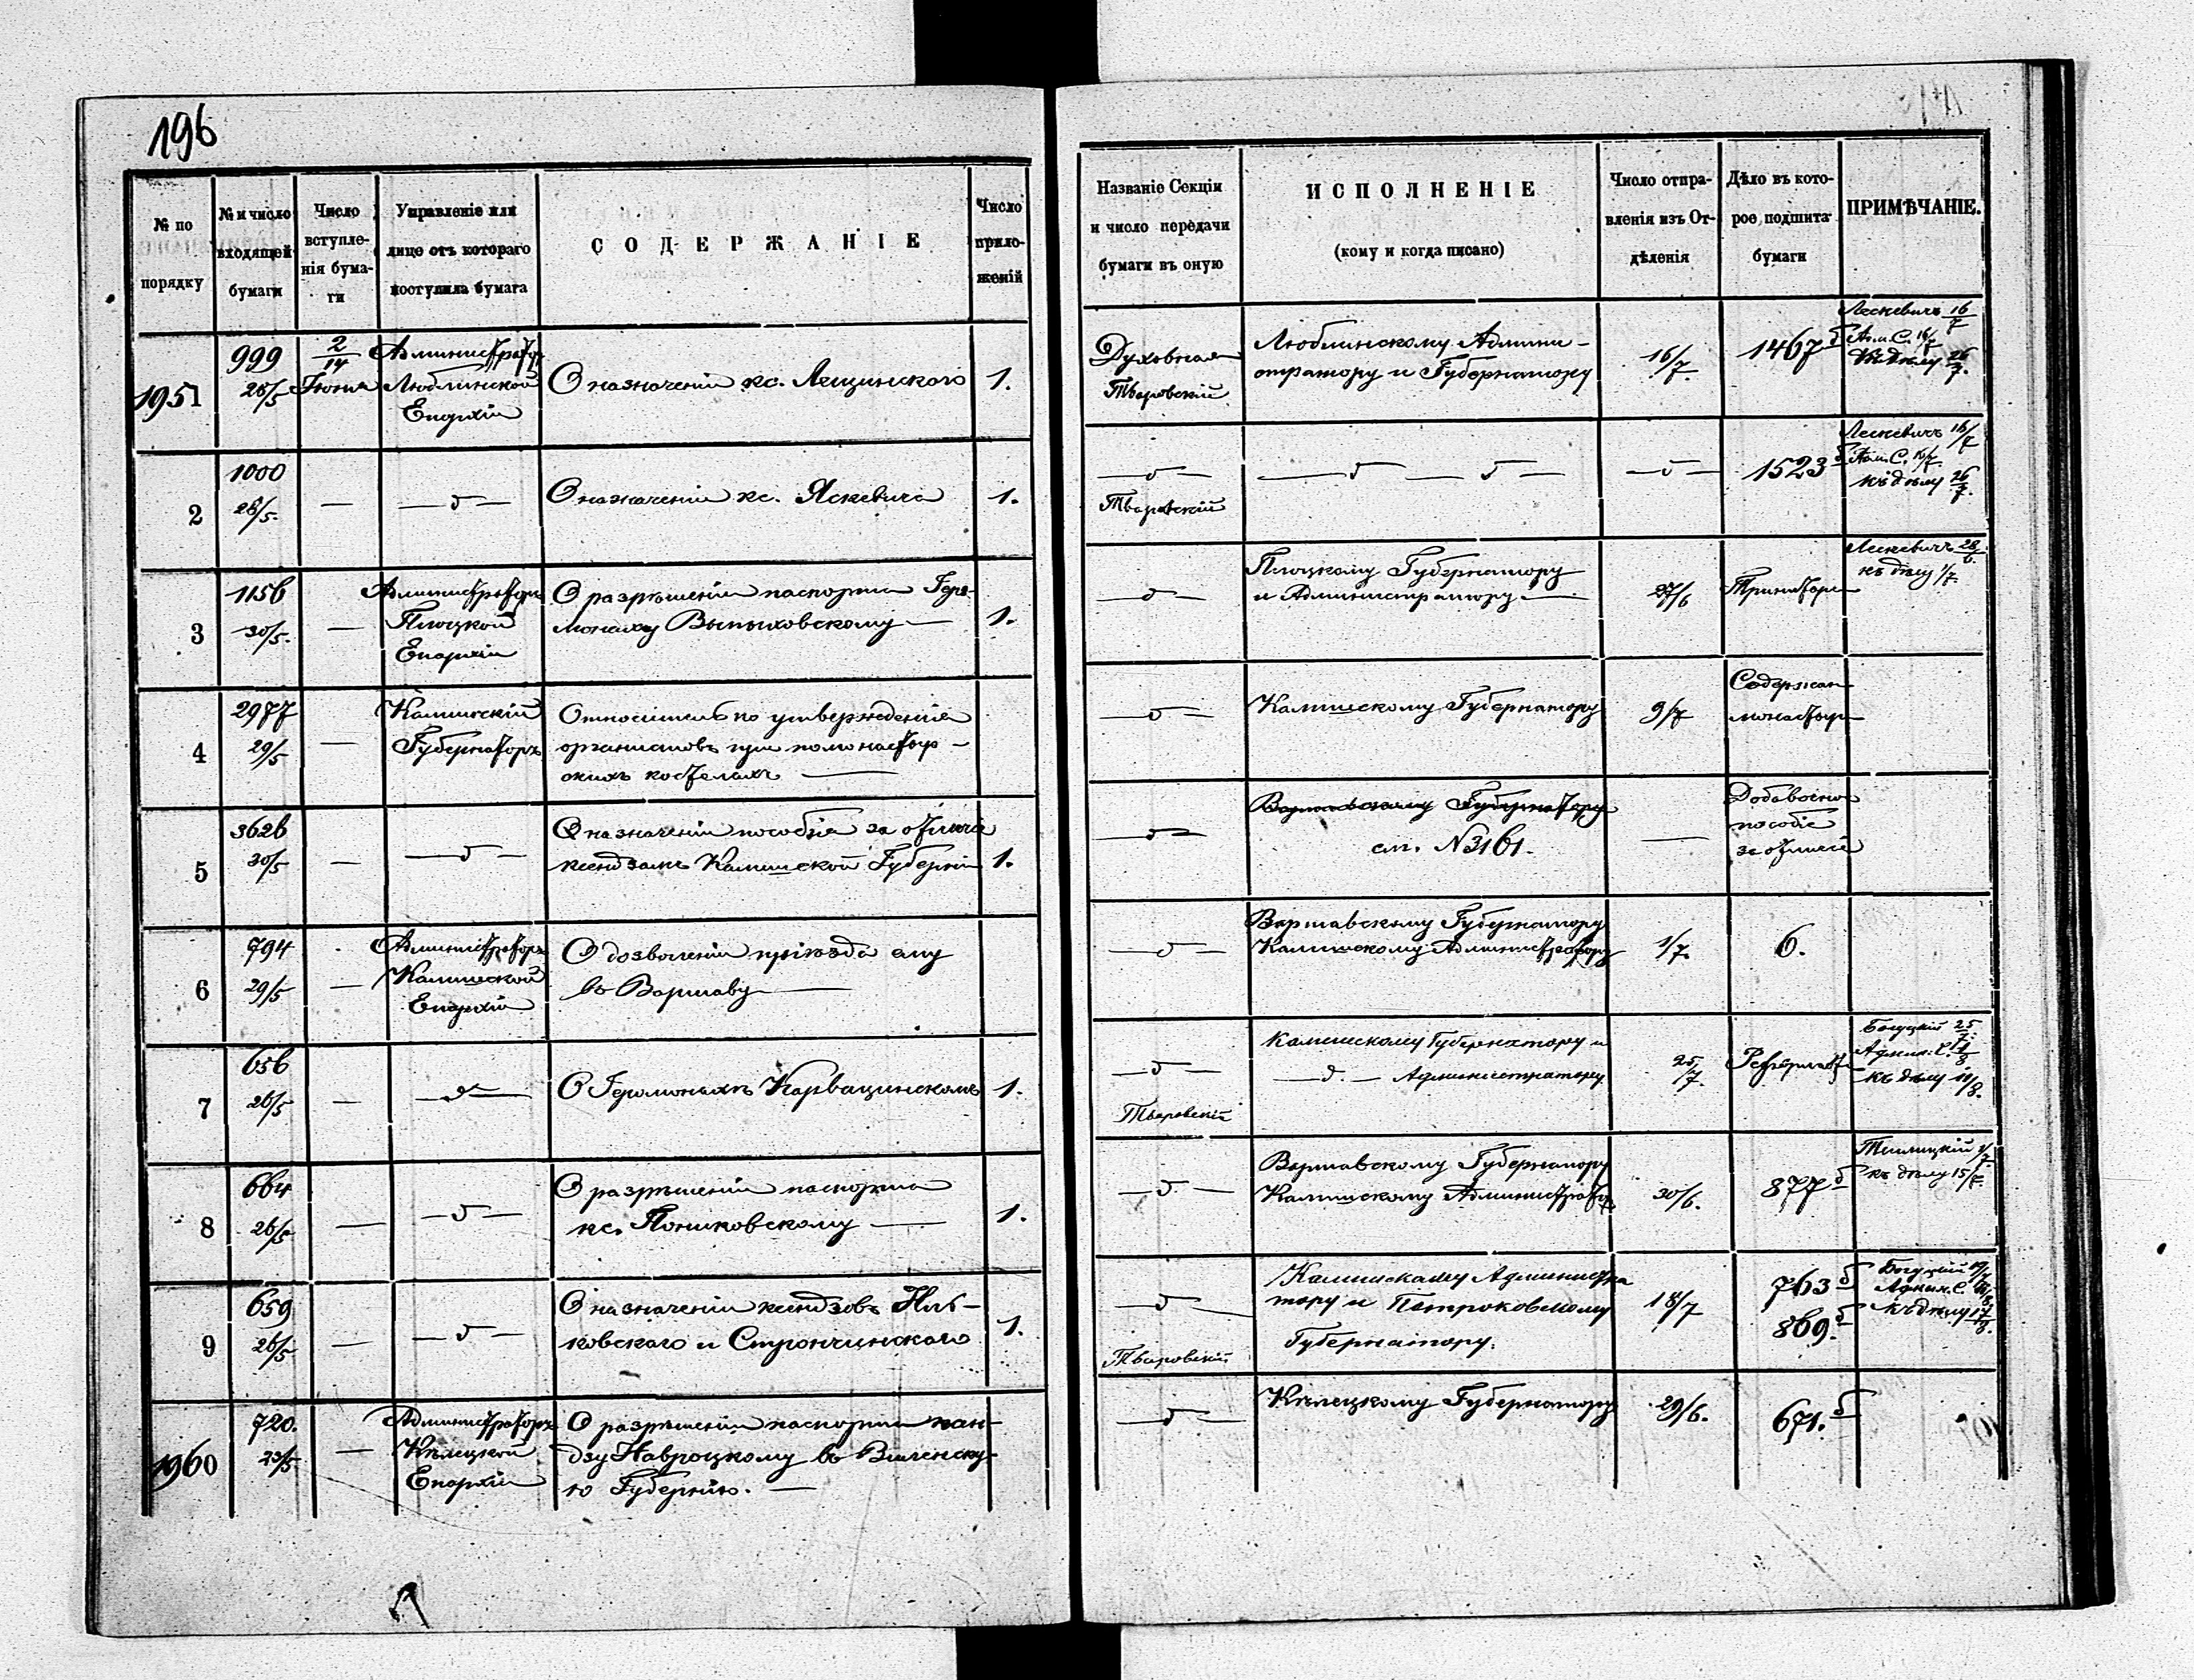 196
№ по порядку
№ и число входящей бумаги
Число вступле-
нія бума-
ги
Управленіе или
лице отъ котораго
поступила бумага
СОДЕРЖАНІЕ
Число
прило-
женій
Названіе Секціи
и число передачи
бумаги въ оную
ИСПОЛНЕНІЕ
(кому и когда писано)
Число отпра-
вленія изъ От-
дѣленія
Дѣло въ кото-
рое подшита
бумаги
ПРИМѢЧАНІЕ.
1951
999
28/5
2/14
Іюня
Администраторъ
Люблинской
Епархіи
О назначеніи кс. Лещинскаго
1.
Духовная
Тваровскій
Люблинскому Админи-
стратору и Губернатору
16/7
1467 б
Лескевичъ 16/7
Адм. С. 16/7
Къ дѣлу 26/7.
2
1000
28/5.
—
— д —
О назначеніи кс. Яскевича
1.
— д —
Тваровскій
— д — д —
— д —
1523 б
Лескевичъ 16/7
Адм. С. 16/7
къ дѣлу 26/7.
3
1156
30/5.
—
Администраторъ
Плоцкой
Епархіи
О разрѣшеніи паспорта Іеро-
монаху Выпыховскому —
1.
— д —
Плоцкому Губернатору
и Администратору —
27/6
Лескевичъ 28/6.
къ дѣлу 1/7.
4
2977
29/5
—
Калишскій
Губернаторъ
Относительно утвержденія
органистовъ при помонастыр-
скихъ костелахъ —
— д —
Калишскому Губернатору
9/7
Содержан
монастыр
5
3626
30/5
—
— д —
О назначеніи пособія за отличіе
ксендзамъ Калишской Губерніи
1.
— д —
Варшавскому Губернатору
см. № 3161.
—
Добавочное
пособіе
за отличіе
6
794
29/5
—
Администраторъ
Калишской
Епархіи
О дозволеніи пріѣзда ему
въ Варшаву —
— д —
Варшавскому Губернатору
Калишскому Администратору
1/7.
6.
7
656
26/5
—
— д —
О Іеромонахѣ Карвацинскомъ
1.
— д —
Тваровскій
Калишскому Губернатору и
— д. — Администратору
25/7.
Богуцкій 25/7.
Админ. С.
къ дѣлу
8
664
26/5
—
— д —
О разрѣшеніи паспорта
кс. Пониковскому —
1.
— д —
Варшавскому Губернатору
Калишскому Администратору
30/6.
877 б
къ дѣлу 15/7.
9
659
26/5
—
— д —
О назначеніи ксендзовъ Иль-
ковскаго и Стрончинскаго
1.
— д —
Тваровскій
Калишскому Администра
тору и Петроковскому
Губернатору.
18/7
763 б
869. б
Богуцкій
Админ. С.
Къ дѣлу
1960
720.
23/5
—
Администраторъ
Кѣлецкой
Епархіи
О разрѣшеніи паспорта ксен-
дзу Навроцкому въ Виленску-
ю Губернію. —
— д —
Кѣлецкому Губернатору
29/6.
671. б